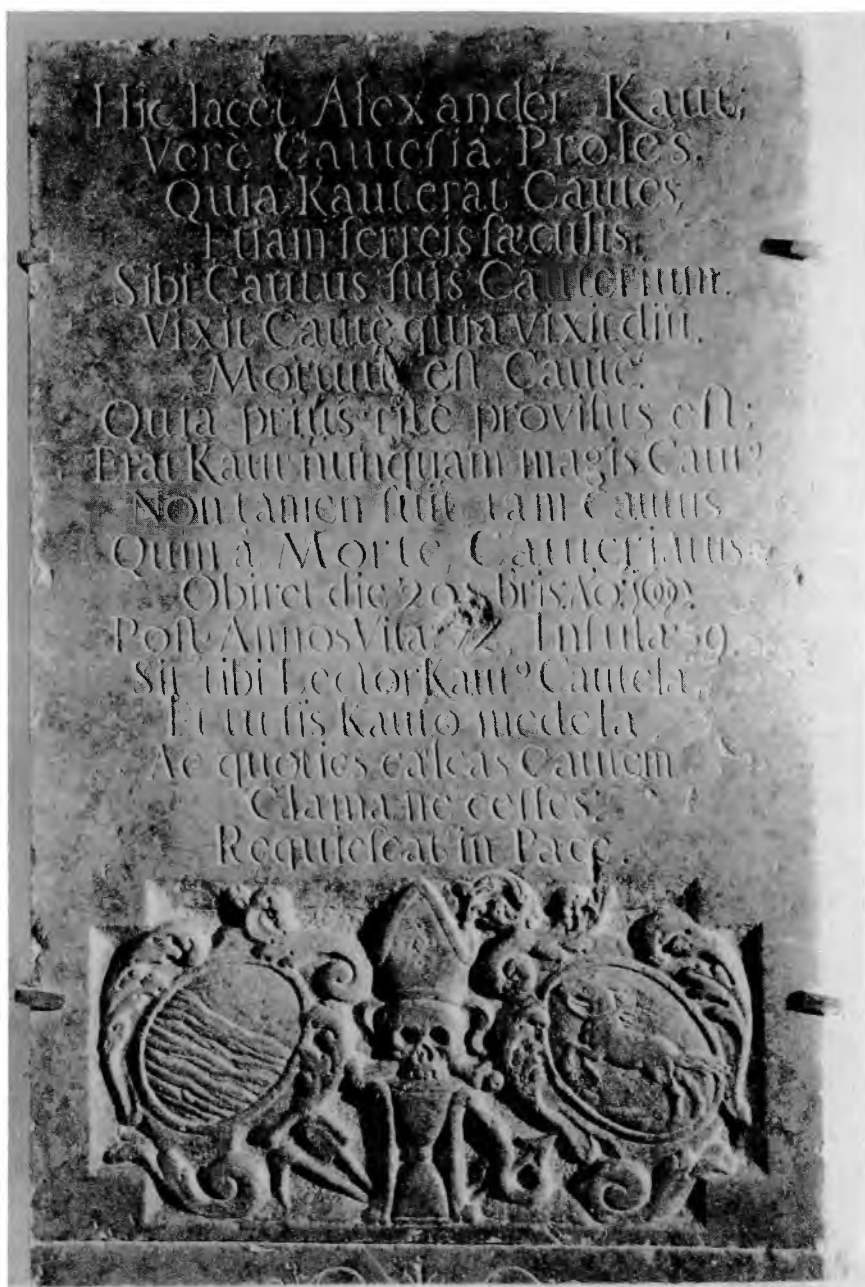 Hic Iacet Alexander Kaut;
Verè Cautesia Proles,
Quia Kaut erat Cautes,
Etiam ferreis sæculis;
Sibi Cautus suis
Vixit Cautè quia vixit diu,
Mortuus est Cautè,
Quia prius ritè provisus est;
Erat Kaut nunquam magis Caut9
Non tamen fuit tam Cautus
Quin à Morte Cauteriatus
Obiret die 20 bris Ao:
Post Annos Vitæ 72, Insulæ 59.
Sit tibi Lector Kaut9 Cautela,
Et tu sis Kauto medela
Ac quoties calcas Cautem
Clama ne cesses;
Requiescat in Pace.